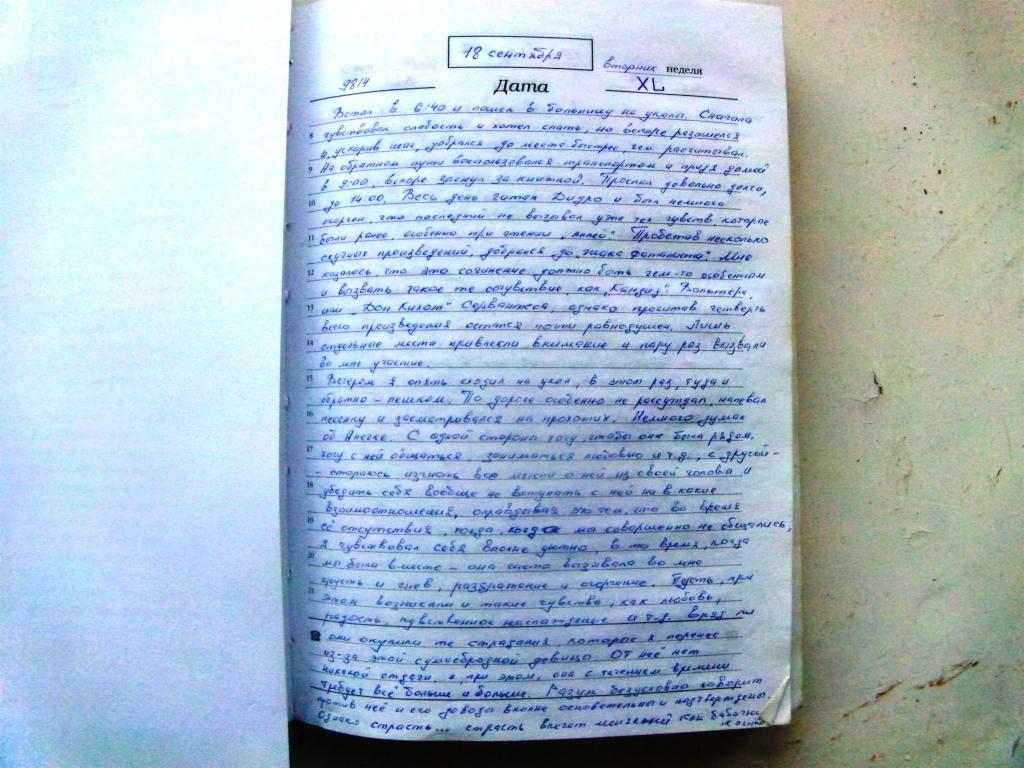 18 сентября
вторник неделя
9814 Дата XL
Встал в 6:40 и пошел в больницу на уколы. Сначала
8 чувствовал слабость и хотел спать, но вскоре разошелся
и, ускорив шаг, добрался до места быстрее, чем рассчитывал.
9 На обратном пути воспользовался транспортом и придя домой
в 9:00, вскоре заснул за книжкой. Проспал довольно долго,
10 до 14:00. Весь день читал Дидро и был немного
огорчен, что последний не вызывал уже тех чувств, которые
11 были ранее, особенно при чтении Пробетав несколько
скучных произведений, добрался до "Жака фаталиста". Мне
12 казалось, что это сочинение должно быть чем-то особенным
и вызвать такое же сочувствие, как "Кандид" Вольтера,
13 или "Дон Кихот" Сервантеса, однако прочитав четверть
всего произведения остался почти равнодушен. Лишь
14 отдельные места привлекли внимание и пару раз вызвали
во мне участие.
15 Вечером я опять сходил на укол, в этот раз, туда и
обратно - пешком. По дороге особенно не рассуждал, напевал
16 песенку и засматривался на прохожих. Немного думал
об Анечке. С одной стороны хочу, чтобы она была рядом,
17 хочу с ней общаться, заниматься любовью и т.д., с другой -
- стараюсь изгнать все мысли о ней из своей головы и
18 убедить себя вообще не вступать с ней ни в какие
взаимоотношения, оправдывая это тем, что во время
19 её отсутствия, тогда, когда мы совершенно не общались,
я чувствовал себя вполне уютно, в то время, когда
20 мы были вместе - она часто вызывала во мне
грусть и гнев, раздражение и огорчение. Пусть, при
21 этом возникали и такие чувства, как любовь,
радость, чувственное наслаждение и т.д. Вряд ли
они окупили те страдания которые я перенес
из-за этой сумасбродной девицы. От неё нет
никакой отдачи, а при этом, она с течением времени
требует всё больше и больше. Разум безусловно говорит
против неё и его доводы вполне основательны и подтверждены.
Однако страсть... страсть влечет меня к ней как бабочку
к огню